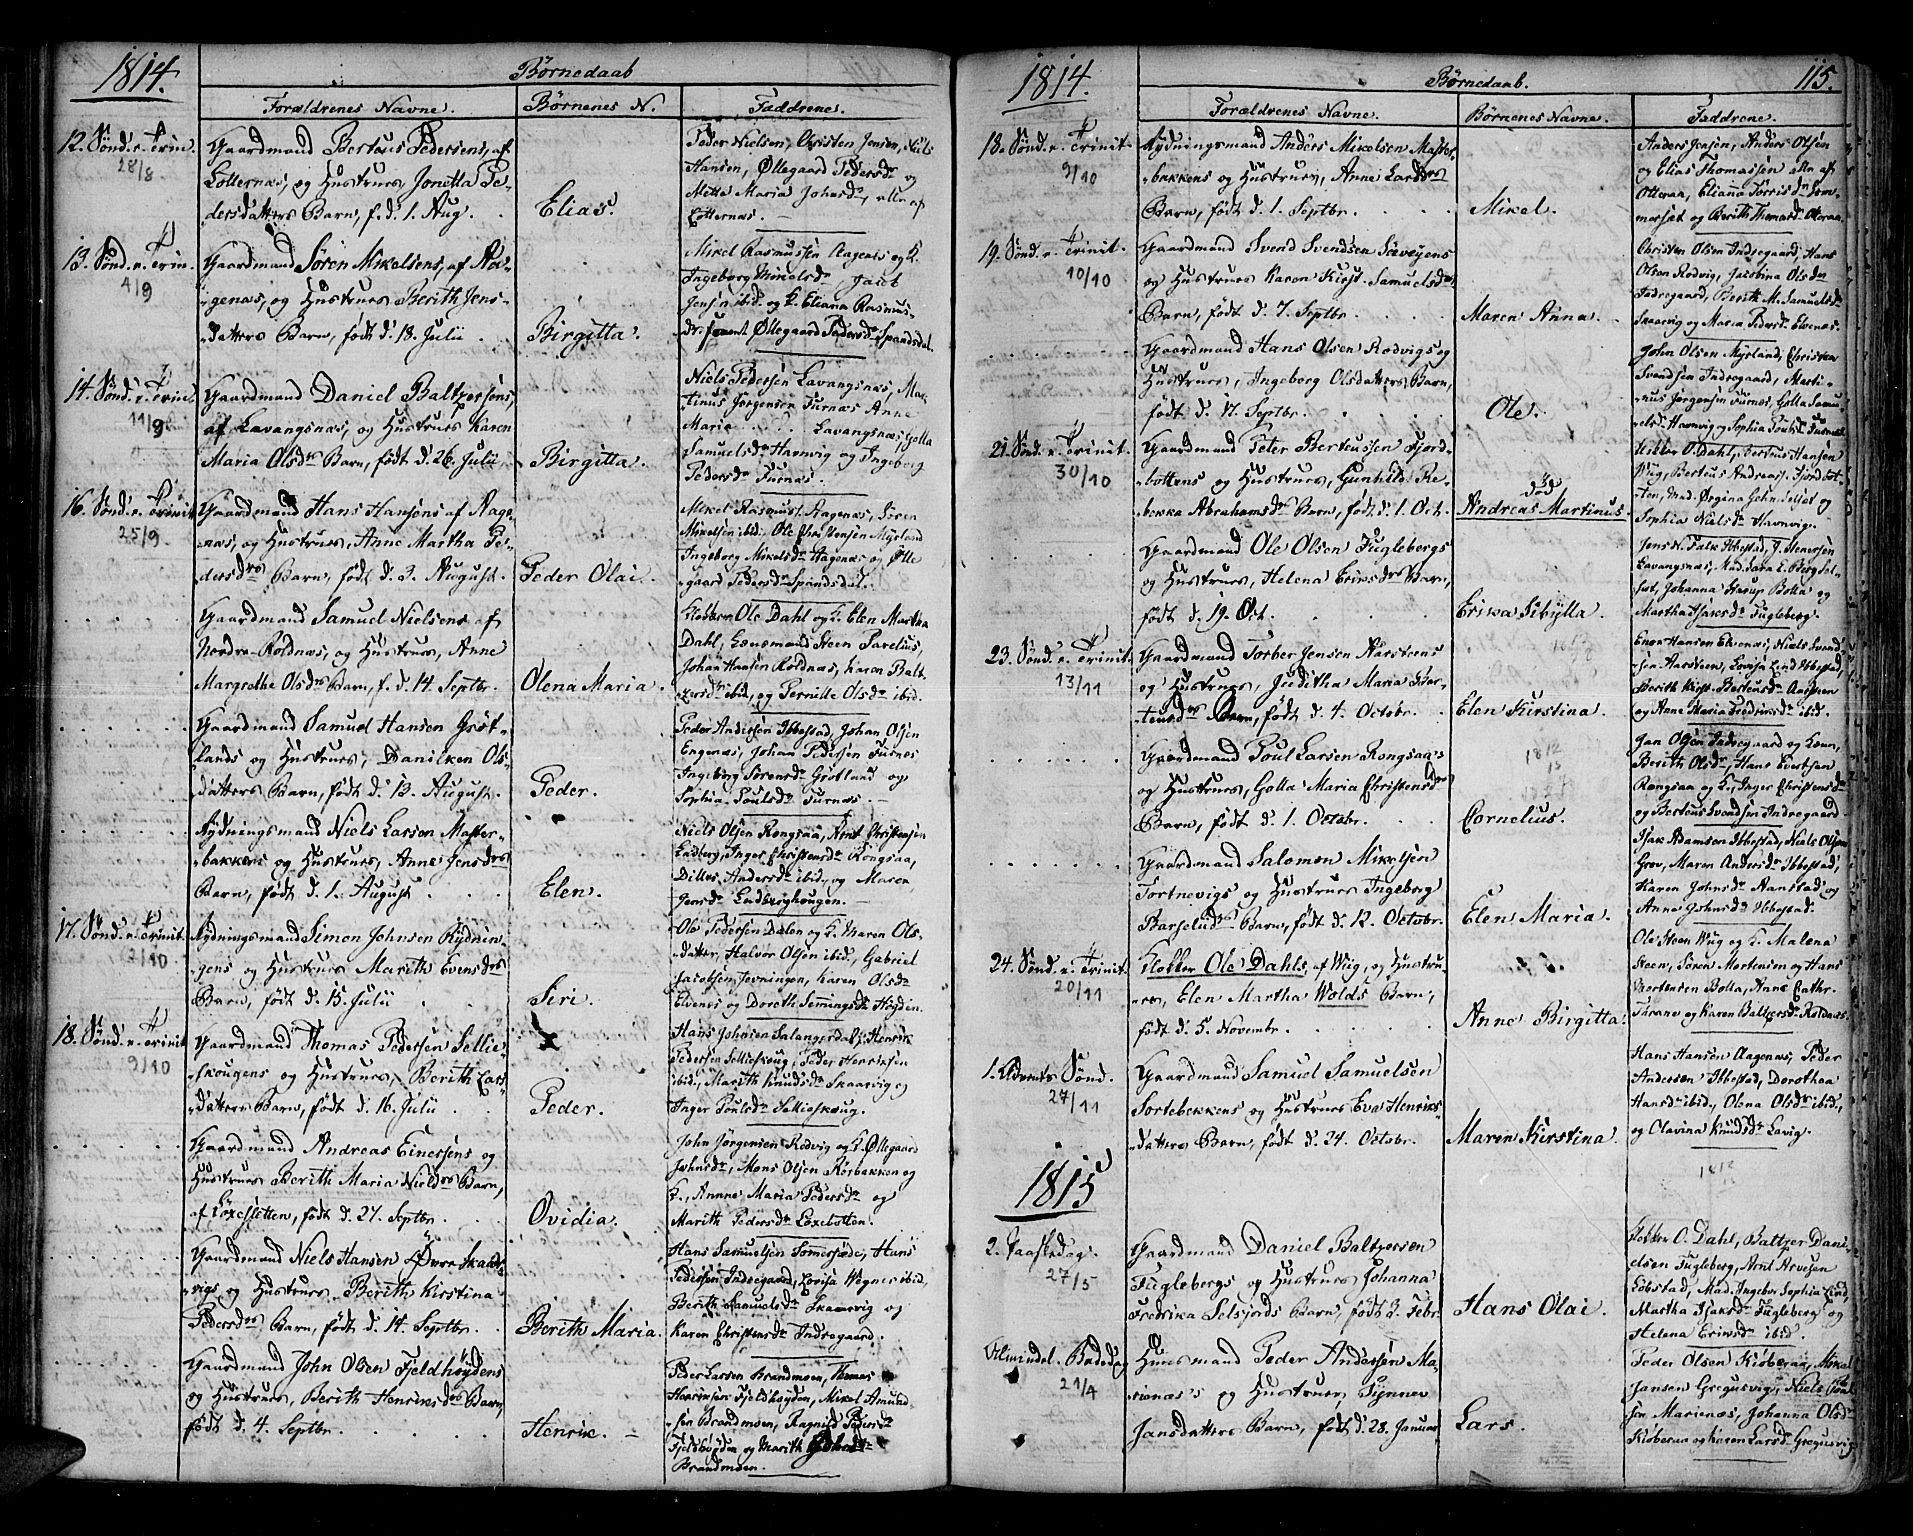 1814.
Børnedaab
Forældrenes Navne.
Børnenes N.
Faddrene.
12. Sønd. e. Trin.
28/8
Gaardmand Berteus Pedersens, af
Lotternæs, og Hustrues Jonetta Pe-
dersdatters Barn, f. d. 1. Aug.
Elias.
Peder Nielsen, Christen Jensen, Niels
Hansen, Øllegaard Pedersdr og
Mette Maria Johnsdr, alle af
Lotternæs.
13. Sønd. e. Trin.
4/9
Gaardmand Søren Mikelsens, af Aa-
genæs, og Hustrues Berith Jens-
datters Barn, født d. 18. Julii
Birgitta.
Mikel Rasmussen Aagenæs og K.
Ingeborg Mikelsdr
Jensen ibid. og K. Eliana Rasmus-
dr. samt Øllegaard Pedersdr Spandsdal.
14. Sønd. e. Trin.
11/9
Gaardmand Daniel Baltzersens,
af Lavangsnæs, og Hustrues Karen
Maria Olsdrs Barn, født d. 26. Julii
Birgitta.
Niels Pedersen Lavangsnæs, Mar-
tinus Jørgensen Furnæs Anne
Maria . . . . Lavangsnæs, Golla
Samuelsdr Havnvig og Ingeborg
Pedersdr Furnæs.
16. Sønd. e. Trinit.
25/9
Gaardmand Hans Hansens af Aage-
næs, og Hustrues, Anne Martha Pe-
dersdrs Barn, født d. 3. August.
Peder Olai.
Mikel Rasmus. Aagenæs, Søren
Mikelsen ibid., Ole Christensen Myrland
Ingeborg Mikelsdr Aagenæs og Ølle-
gaard Pedersdr Spandsdal.
Gaardmand Samuel Nielsens af
Nordre-Roldnæs, og Hustrues, Anne
Margrethe Olsdrs Barn, f. d. 14. Septbr.
Olena Maria.
Klokker Ole Dahl og K. Elen Martha
Dahl, Lensmand Steen Parelius,
Johan Hansen Roldnæs, Karen Balt-
zersdr ibid., og Pernille Olsdr ibid.
Gaardmand Samuel Hansen Grøt-
lands og Hustrues, Daniken Ols-
datters Barn, født d. 13. August.
Peder.
Peder Andersen Ibbestad, Johan Olsen
Engenæs, Johan Pedersen Furnæs
Ingeborg Sørensdr Grotland og
Sophia Poulsdr Furnæs.
Rydningsmand Niels Larsen Master-
bakkens og Hustrues, Anne Jensdrs
Barn, født d. 1. August
Elen.
Niels Olsen Rongsaa, Arnt Christensen
Lidberg, Inger Christensdr Rongsaa,
Dille Andersdr ibid., og Maren
Jensdr Lidberghougen.
17. Sønd. e. Trinit.
2/10
Rydningsmand Simon Johnsen Rydnin-
gens og Hustrues Marith Evensdrs
Barn, født d. 15. Julii
Siri.
Ole Pedersen Dalen og K. Maren Ols-
datter, Halvor Olsen ibid., Gabriel
Jacobsen Jevningen, Karen Olsdr
Elvenes og Dorothe Semmingsdr Høyden.
18. Sønd. e. Trinit
9/10
Gaardmand Thomas Pedersen Sellie-
skougens og Hustrues, Berith Lars-
datters Barn, født d. 16. Julii
Peder.
Hans Johnsen Salangsdal, Henrik
Pedersen Sellieskoug, Peder Henriksen
ibid., Marith Knudsdr Skaarvig og
Inger Poulsdr Sellieskoug.
Gaardmand Andreas Einersens og
Hustrues Berith Maria Nielsdrs Barn,
af Løxesletten, født d. 27. Septbr.
Ovidia.
John Jørgensen Rodvig og K. Øllegaard
Johnsdr, Mons Olsen Rørbakken og
K., Annne Maria Pedersdr og
Marith Pedersdr Loxebotten.
Gaardmand Niels Hansen Øvre Skaar-
vigs og Hustrues Berith Kirstina
Pedersdrs Barn, født d. 14. Septbr.
Berith Maria.
Hans Samuelsen Sommersæde, Hans
Pedersen Indregaard, Lovisa Wegner ibid,
Berith Samuelsdr Skaarvig og
Karen Christensdr Indregaard.
Gaardmand John Olsen Fjeldhøydens
og Hustrues, Berith Henriksdrs Barn,
født d. 4. Septbr.
Henrik.
Peder Larsen Brandmoen, Thomas
Henriksen Fjeldhøyden, Mikel Amund-
sen Brandmoen, Ragnild Pedersdr
Fjeldhøyden og Marith
Brandmoen.
1814.
Børnedaab.
115.
Forældrenes Navne.
Børnenes Navne.
Faddrene.
18. Sønd. e. Trinit.
9/10
Rydningsmand Anders Mikelsen Master-
bakkens og Hustrues, Anne Larsdrs
Barn, født d. 1. Septbr.
Mikel.
Anders Jensen, Anders Olsen
og Elias Thomassen alle af
Otteraa, Elianna Torrisdr Som-
mersæt og Berith Thomasdr Otteraa.
19. Sønd. e. Trinit.
10/10
Gaardmand Svend Svendsen Sørveyens
og Hustrues Karen Kirst. Samuelsdrs
Barn, født d. 7. Septbr.
Maren Anna.
Christen Olsen Indregaard, Hans
Olsen Rodvig, Jacobina Olsdr
Indregaard, Berith M. Samuelsdr
Skaarvig og Maria Pedersdr Elvenæs.
Gaardmand Hans Olsen Rodvigs og
Hustrues, Ingeborg Olsdatters Barn,
født d. 17. Septbr.
Ole.
John Olsen Myrland, Christen
Svendsen Indregaard, Marti-
nus Jørgensen Furnes, Golla Samu-
elsdr Havnvig og Sophia Poulsdr Furnæs.
21. Sønd. e. Trinit.
30/10
Gaardmand Peter Berteussen Fjord-
bottens og Hustrues, Gunhild Re-
bekka Abrahamsdrs Barn, født d. 1. Oct.
død
Andreas Martinus.
Klokker O. Dahl, Berteus Hansen
Wug, Berteus Andreas. Fjordbot-
ten, Mad. Øregina John Selset og
Sophia Nielsdr Havnvig.
Gaardmand Ole Olsen Fuglebergs
og Hustrues, Helena Eriksdrs Barn,
født d. 19. Oct.
Erika Sibylla.
Jens H. Falk Ibbestad, J. Stenersen
Lavangsnæs, Mad. Sara E. Berg Sel-
set, Johanna Strup Bolla og
Martha Isaksdr Fugleberg.
23. Sønd. e. Trinit.
13/11
Gaardmand Torber Jensen Aarsteens
og Hustrues, Juditha Maria Ber-
teusdrs Barn, født d. 4. Octobr.
Elen Kirstina.
Enok Hansen Elvenæs, Niels Svend-
sen Aarsteen, Lovisa Lind Ibbestad,
Berith Kirst. Berteusdr Aarsteen
og Anne Maria Fredriksdr ibid.
Gaardmand Poul Larsen Rongsaa's
og Hustrues, Golla Maria Christensdrs
Barn, født d. 1. Octobr.
Cornelius.
Jan Olsen Indregaard og Kone,
Berith Olsdr, Hans Evertsen
Rongsaa og K., Inger Christensdr
og Berteus Svendsen Indregaard
Gaardmand Salomon Mikelsen
Tortnevigs og Hustrues Ingeborg
Barseliusdrs Barn, født d. 12. Octobr.
Elen Maria.
Isak Adamsen Ibbestad, Niels Olsen
Grov, Maren Andersdr Ibbestad,
Karen Johnsdr Hanstad og
Anne Johnsdr Ibbestad.
24. Sønd. e. Trinit.
20/11
Klokker Ole Dahls, af Wiig, og Hustru-
es, Elen Martha Wolds Barn,
født d. 5. Novembr.
Anne Birgitta.
Ole Steen Wug og K. Malena
Steen, Søren Mortensen og Hans
Mortensen Bolla, Anne Cathr.
Turano og Karen Baltzersdr Roldnæs.
1. Advents Sønd.
27/11
Gaardmand Samuel Samuelsen
Sortebekkens og Hustrues Eva Henriks-
datters Barn, født d. 24. Octobr.
Maren Kirstina.
Hans Hansen Aagenæs, Peder
Andersen Ibbestad, Dorothea
Hansdr ibid., Olena Olsdr ibid.,
og Olavina Knudsdr Lavig.
1815
2. Paaskedag.
27/5
Gaardmand Daniel Baltzersen
Fuglebergs og Hustrues Johanna
Fredrika Selsjords Barn, født 3. Febr.
Hans Olai.
Klokker O. Dahl, Baltzer Dani-
elsen Fugleberg, Arnt Arvesen
Løbstad, Mad. Ingebor Sophia Lind,
Martha Isaksdr Fugleberg og
Helena Eriksdr ibid.
Almindel. Bededag
21/4
Huusmand Peder Andersen Ma-
rienæs's og Hustrues, Synnev
Jansdatters Barn, født d. 28. Januar
Lars.
Peder Olsen Kiøberaa, Mikel
Jansen Gregusvig, Niels Poul-
sen Marienæs, Johanna Olsdr
Kiøberaa og Karen Larsdr Gregusvig